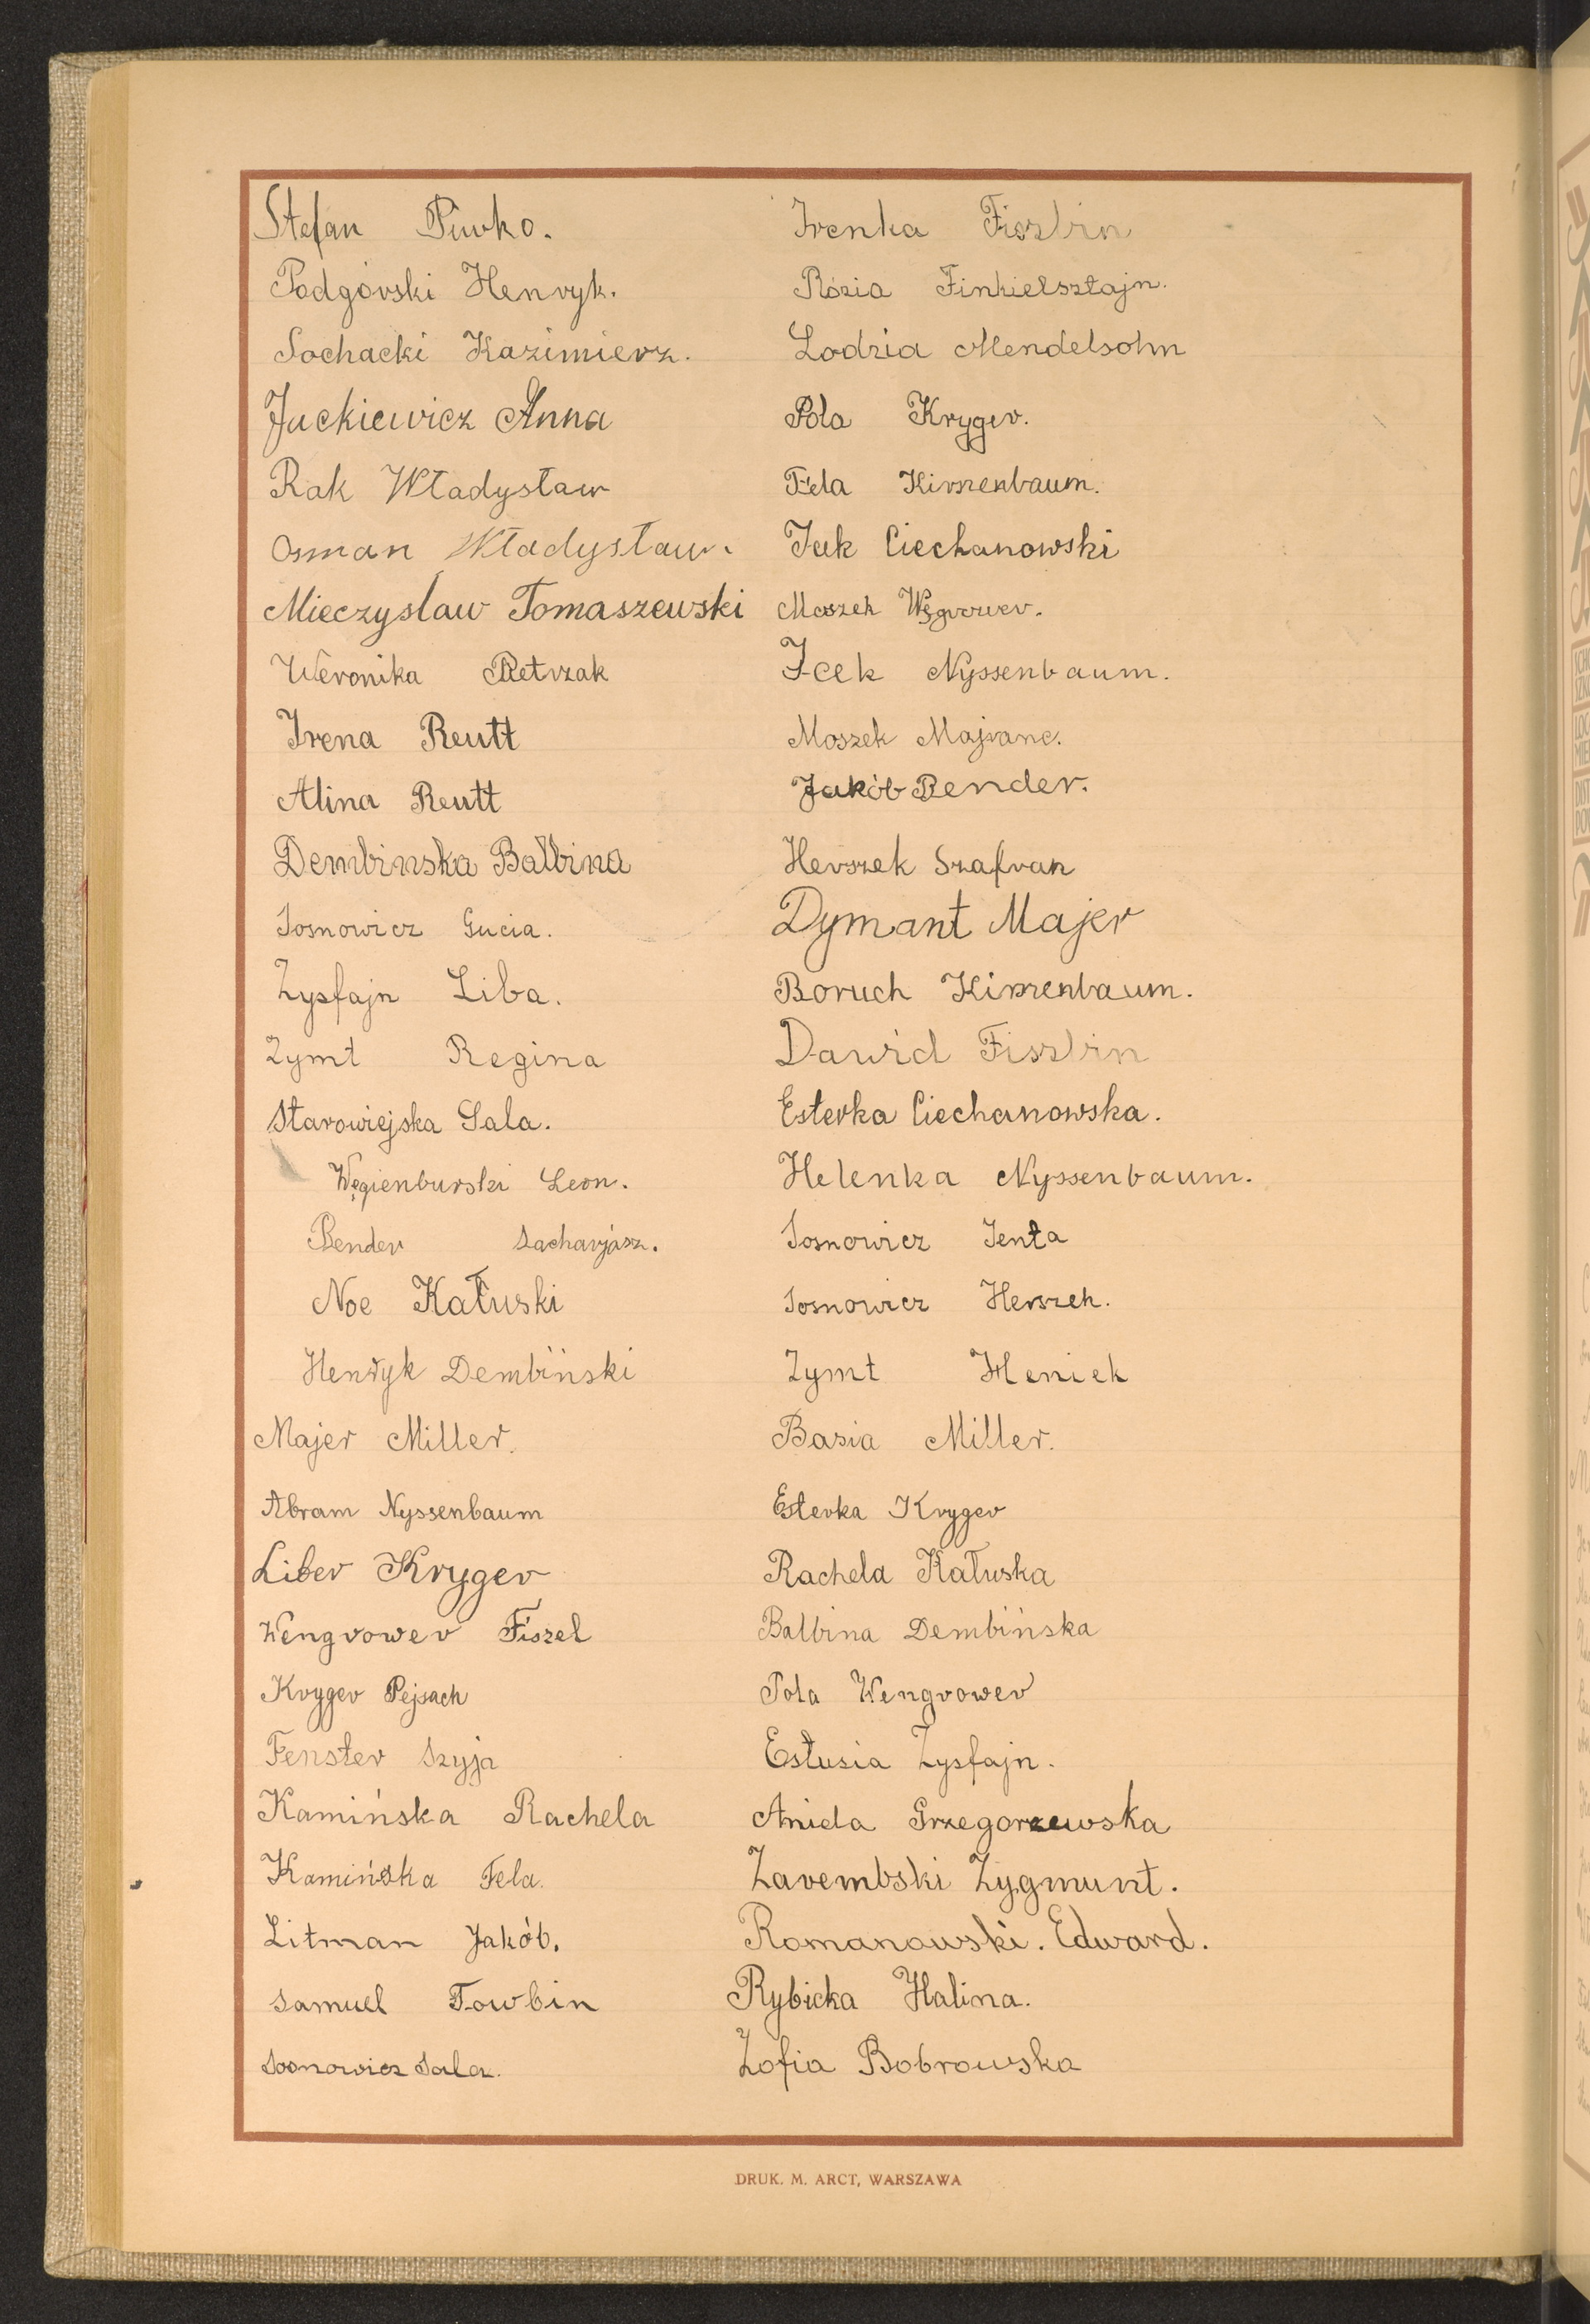 Stefan Piwko.
Podgórski Henryk.
Sochacki Kazimierz.
Jackiewicz Anna
Rak Władysław
Osman Władysław.
Mieczysław Tomaszewski
Weronika Pietrzak
Irena Reutt
Alina Reutt
Dembinska Balbina
Sosnowicz Gucia.
Zysfajn Liba.
Zymt Regina
Starowiejska Sala.
Węgienburski Leon.
Bender Sacharjasz.
Noe Kałuski
Henryk Dembiński
Majer Miller.
Abram Nyssenbaum
Liber Kryger
Wengrower Fiszel
Kryger Pejsach
Fenster Szyja
Kamińska Rachela
Kamińska Fela.
Litman Jakób.
Samuel Towbin
Sosnowicz Sala.
Irenka Fiszbin
Rózia Finkielsztajn.
Lodzia Mendelsohn
Pola Kryger.
Fela Kirszenbaum.
Icek Ciechanowski
Moszek Węgrower.
Icek Nyssenbaum.
Moszek Majranc.
Jakób Bender.
Herszek Szafran
Dymant Majer
Boruch Kirszenbaum.
Dawid Fiszbin
Esterka Ciechanowska.
Helenka Nyssenbaum.
Sosnowicz Jenta
Sosnowicz Herszek.
Zymt Heniek
Basia Miller.
Esterka Kryger
Rachela Kałuska
Balbina Dembińska
Pola Wengrower
Estusia Zysfajn.
Aniela Grzegorzewska
Zarembski Zygmunt.
Romanowski. Edward.
Rybicka Halina.
Zofia Bobrowska
DRUK. M. ARCT, WARSZAWA